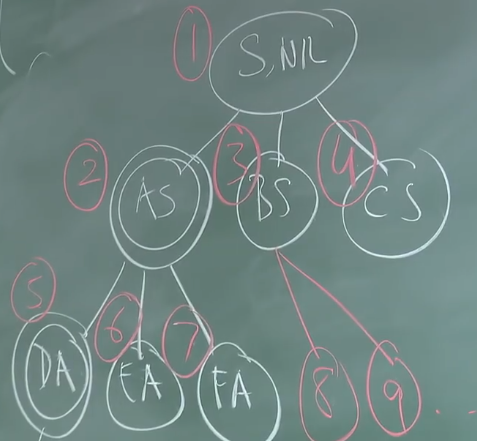 1
S, NIL
2
3
4
AS
BS
CS
5
6
7
DA
EA
FA
8
9 ...